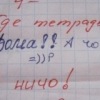 Где тетрадь
Вова!! А чо
=))Р
ничо!